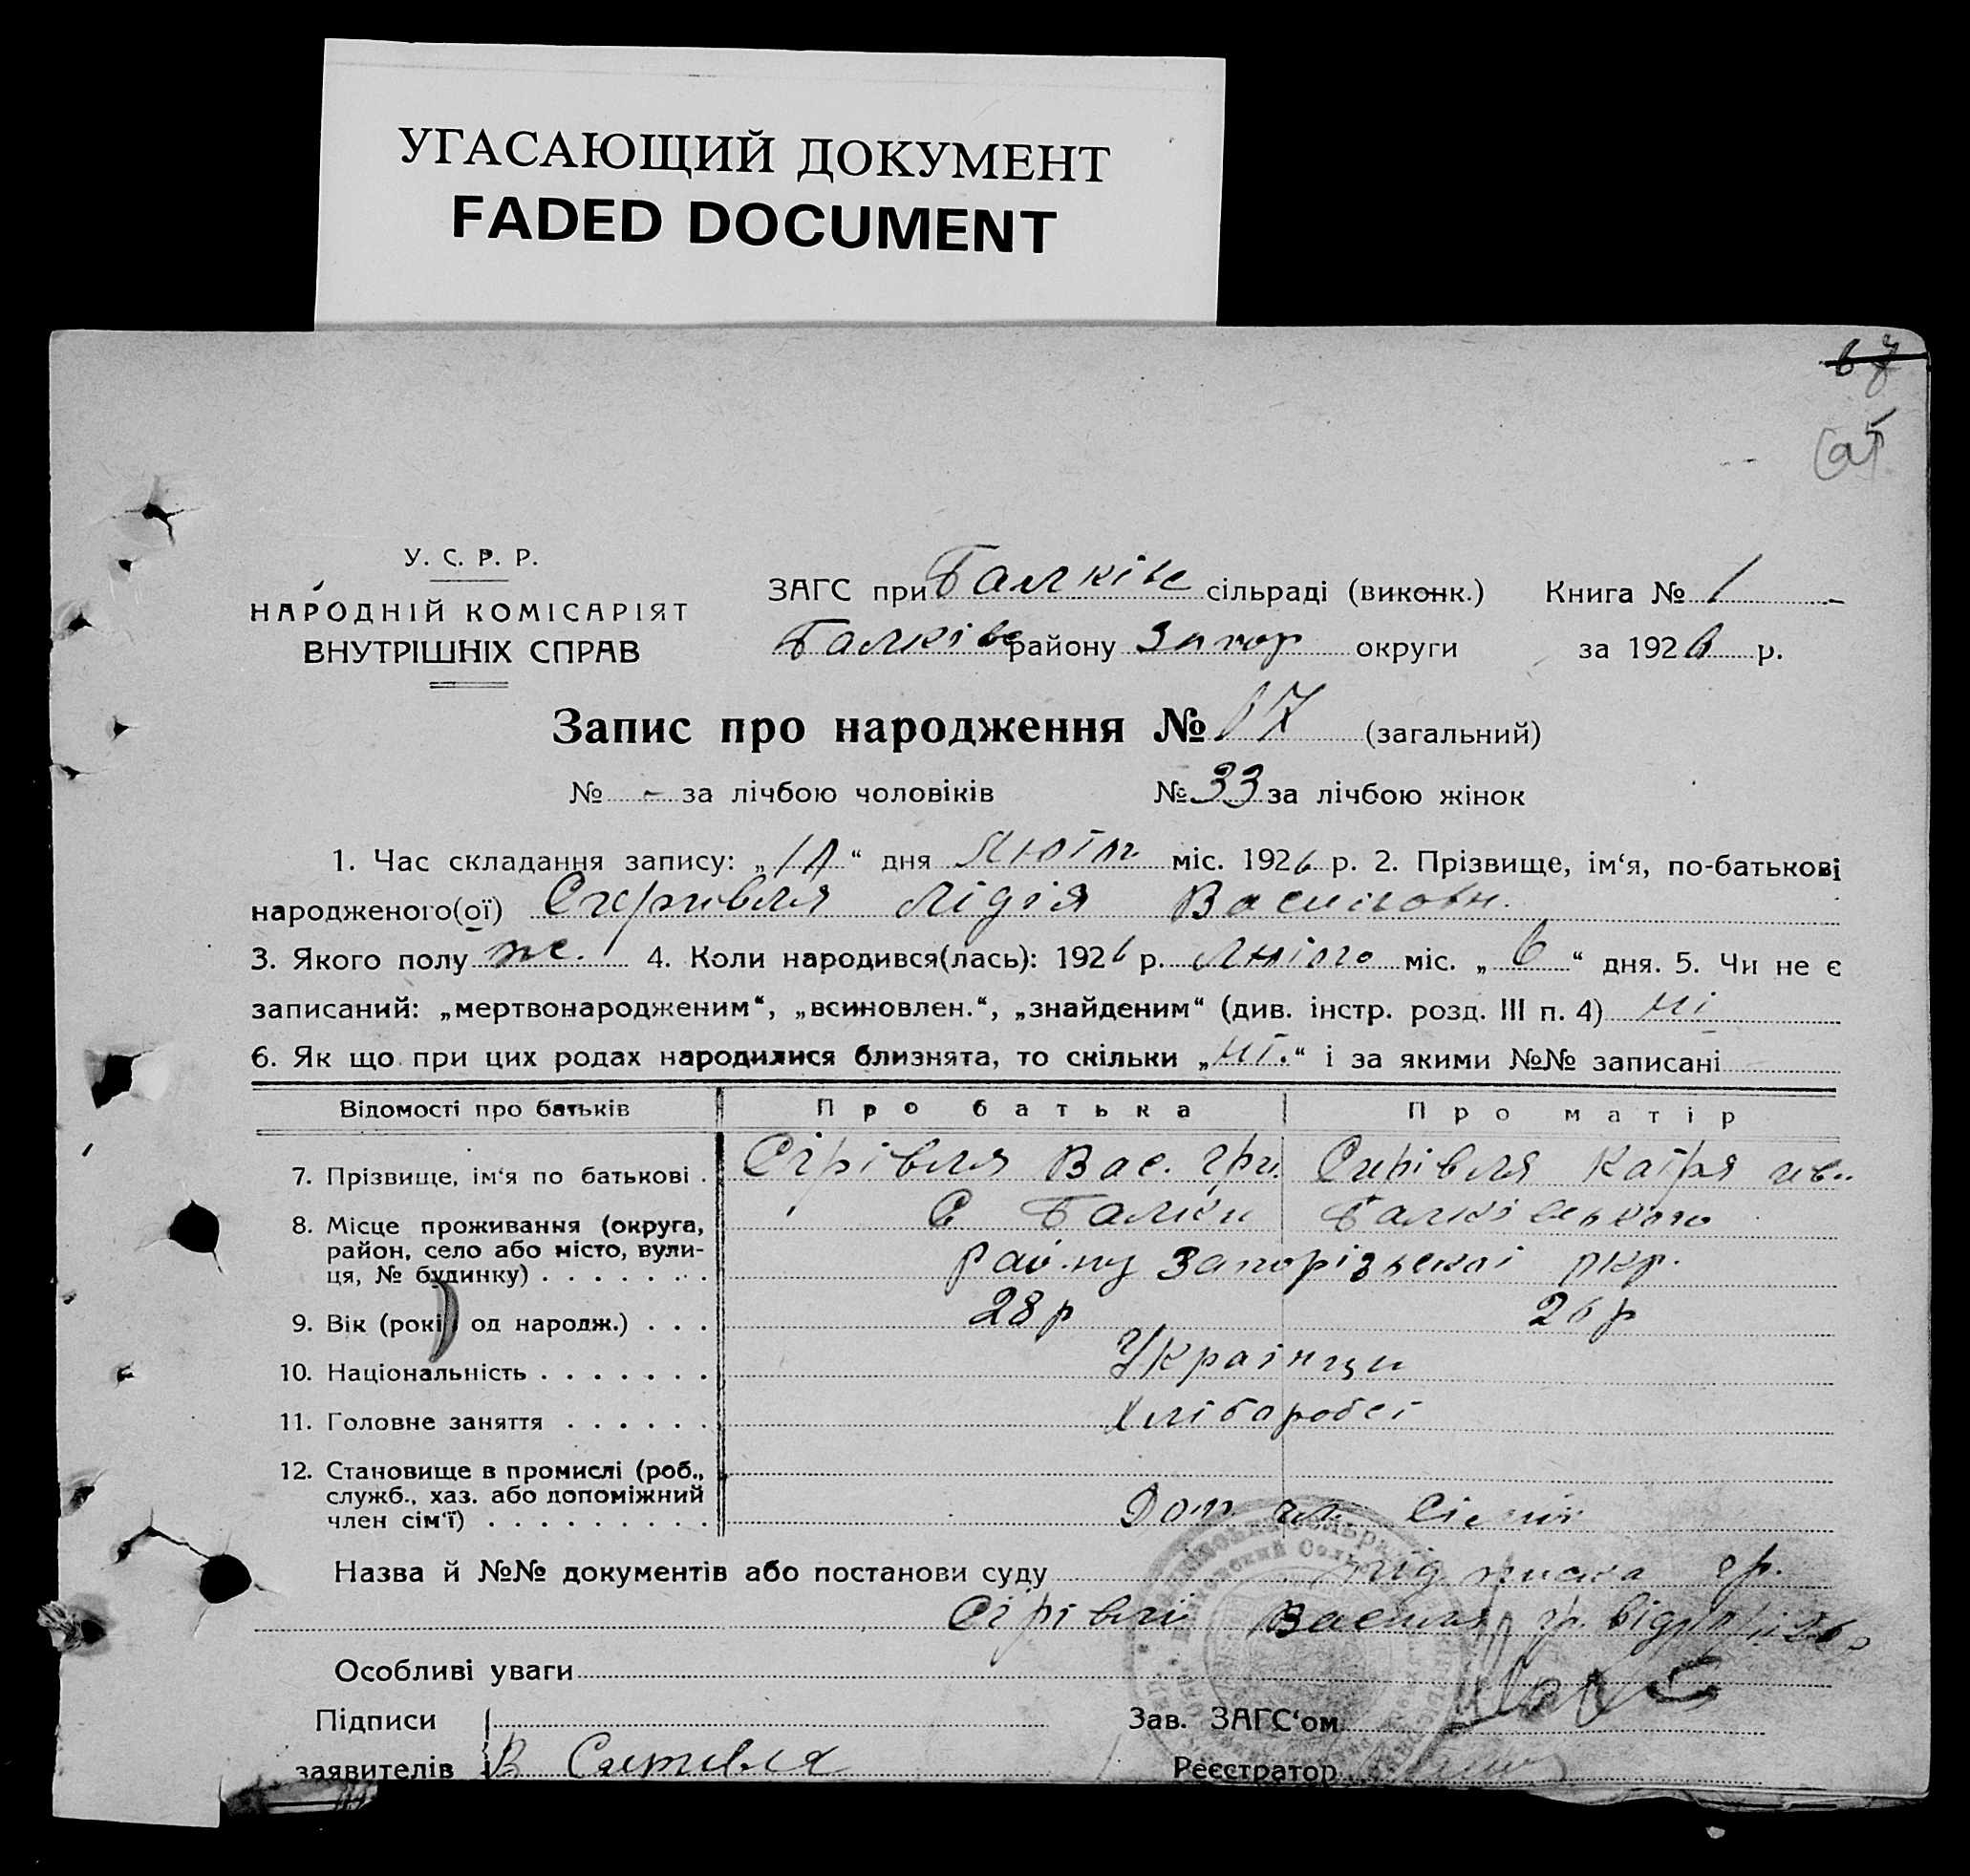 УГАСАЮЩИЙ ДОКУМЕНТ
FADED DOCUMENT
67
У. С. Р. Р.
НАРОДНІЙ КОМІСАРІЯТ
ВНУТРІШНІХ СПРАВ
ЗАГС при Балківс сільраді (виконк.) Книга № 1
Балківс району Запор округи за 1926 р.
Запис про народження № 67 (загальний)
№ - за лічбою чоловіків № 33 за лічбою жінок
1. Час складання запису: „ “ дня Лютог міс. 1926 р. 2. Прізвище, ім‘я, по-батькові
народженого(ої) Сиривля Лідія Васильовн.
3. Якого полу ж. 4. Коли народився(лась): 1926 р. Лютого міс. „6“ дня. 5. Чи не є
записаний: „мертвонародженим“, „всиновлен.“, „знайденим“ (див. інстр. розд. III п. 4) ні
6. Як що при цих родах народилися близнята, то скільки „ні.“ і за якими №№ записані
Відомості про батьків Про батька Про матір
7. Прізвище, ім‘я по батькові . Сірівля Вас. Гри. Сирівля Катря Ів..
8. Місце проживання (округа, С Балки Балківського
район, село або місто, вули-
ця, № будинку) . . . . . . . району Запорізської окр.
9. Вік (років од народж.) . . . 28 р 26 р
10. Національність . . . . . . . Українци
11. Головне заняття . . . . . . Хліборобст
12. Становище в промислі (роб.,
служб., хаз. або допоміжний
член сім‘ї) . . . . . . . . . Доп. чл. Сісмії
Назва й №№ документів або постанови суду підписка гр.
Сірівлі Василя гр. від
Особливі уваги
Підписи Зав. ЗАГС‘ом
заявителів В Сиривля Реєстратор